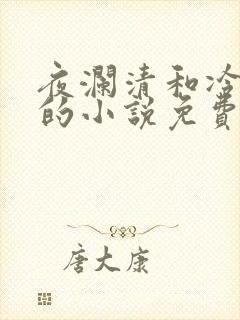 夜瀾清和冷
的小說免費
唐大康